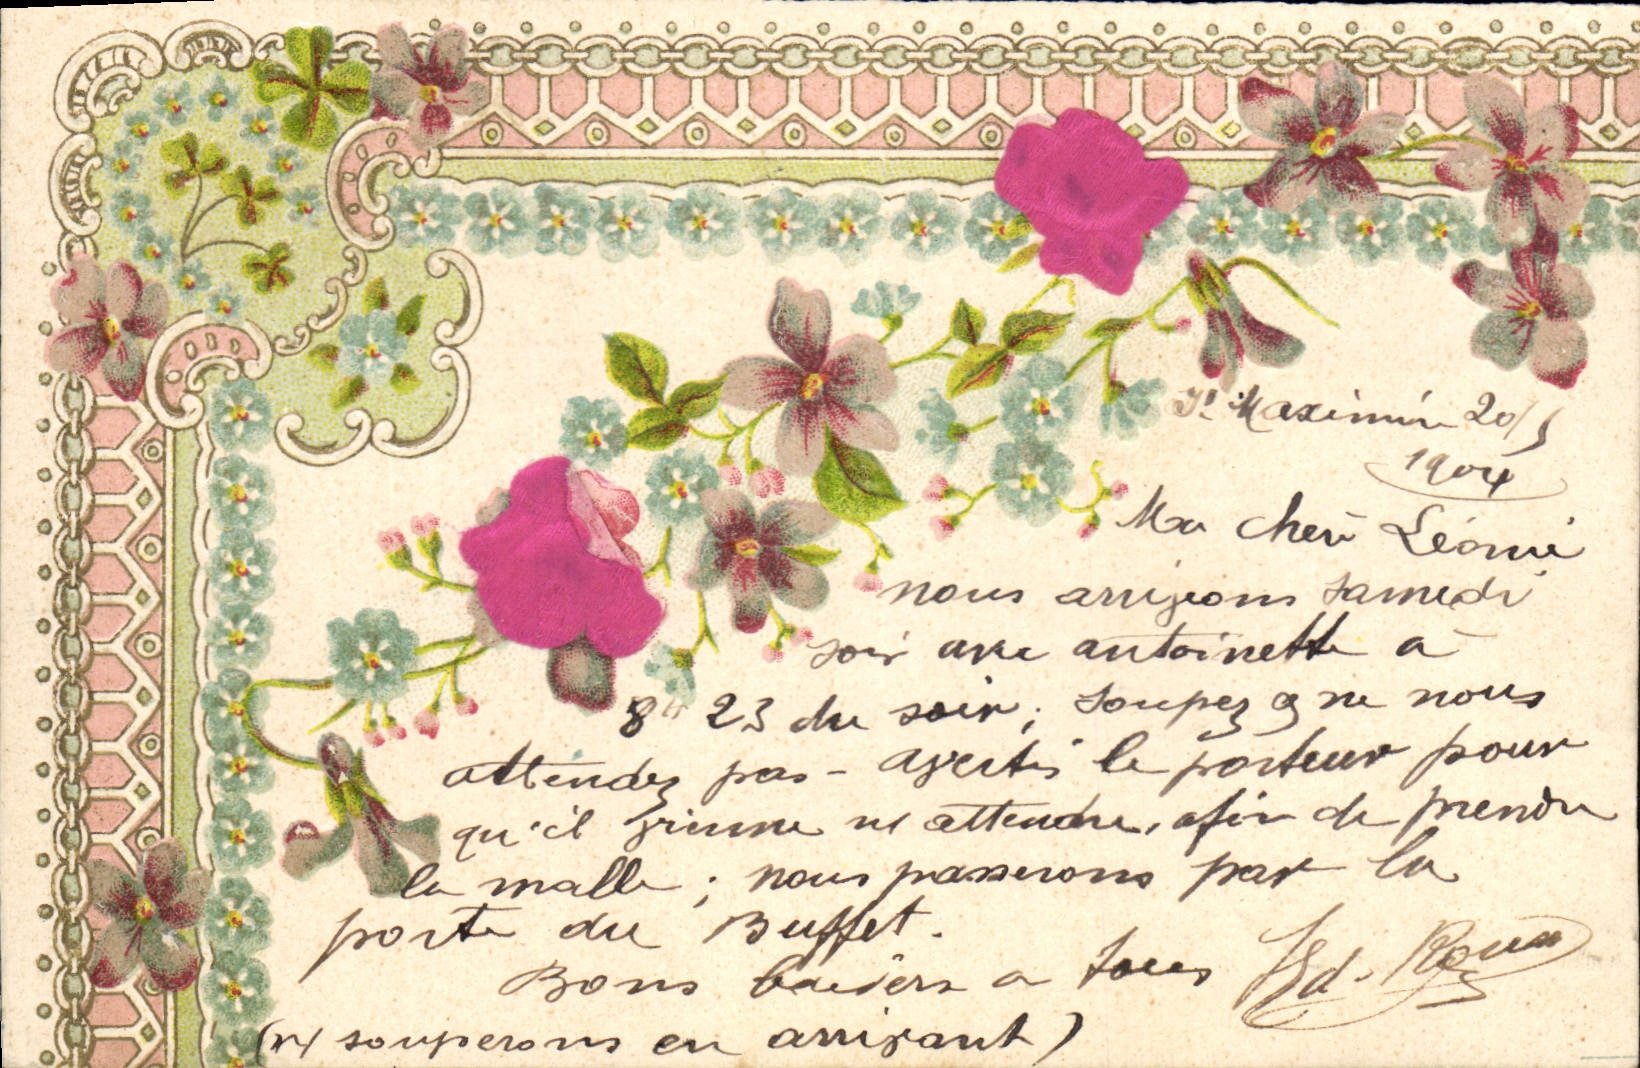 St Maximin 20/5
1904
Ma chère Léonie
nous arrivons samedi
soir avec antoinette à
8h 23 du soir ; soupez & ne nous
attendez pas - avertis le porteur pour
qu'il vienne ns attendre, afin de prendre
la malle ; nous passerons par la
porte du Buffet.
Bons baisers a tous Ed. Roux
(ns souperons en arrivant)